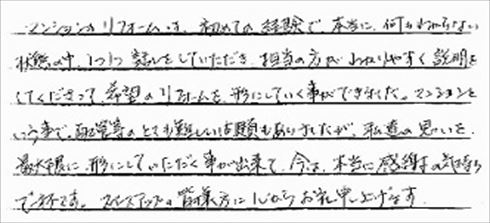 マンションのリフォームは、初めての経験で、本当に何もわからない
状態の中、1つ1つ話しをしていただき、担当の方がわかりやすく説明を
してくださって、希望のリフォームを形にしていく事ができました。マンションと
いう事で、配管等のとても難しい問題もありましたが、私達の思いを
最大限に形にしていただく事が出来て、今は、本当に感謝の気持ち
で一杯です。スペースアップの皆様方に心からお礼申し上げます。